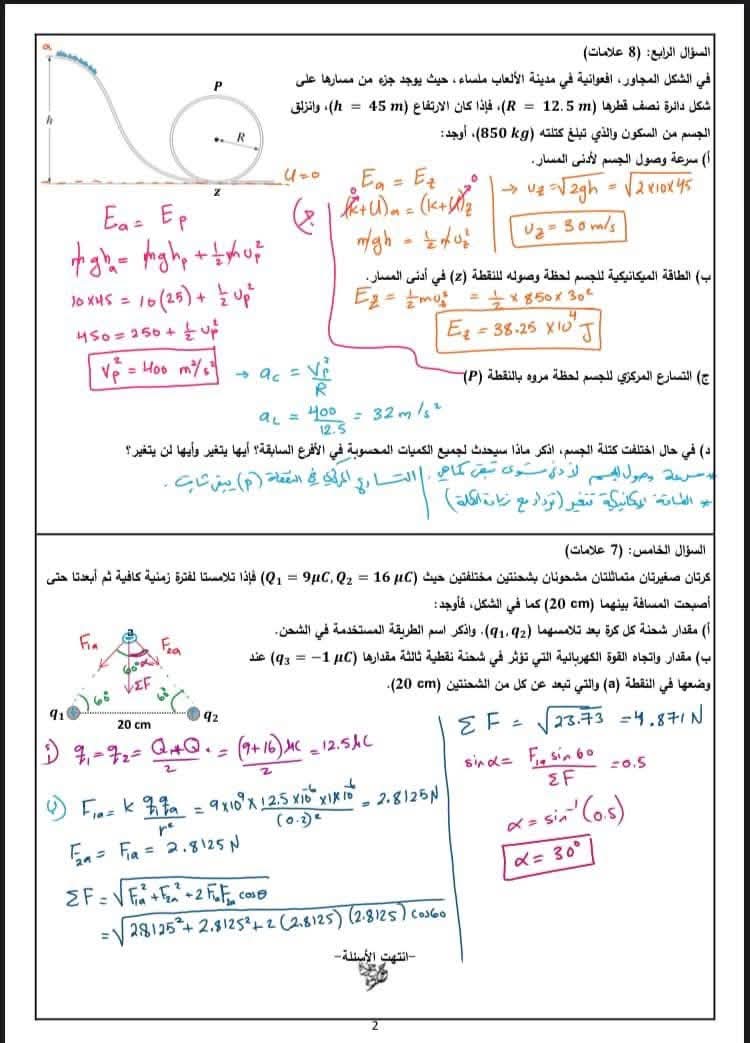 السؤال الرابع: (8 علامات)
في الشكل المجاور، افعوانية في مدينة الألعاب ملساء، حيث يوجد جزء من مسارها على
شكل دائرة نصف قطرها (R = 12.5 m)، فإذا كان الارتفاع (h = 45 m)، وانزلق
الجسم من السكون والذي تبلغ كتلته (850 kg)، أوجد:
a
P
h
R
z
U=0
أ) سرعة وصول الجسم لأدنى المسار.
Ea = Ez
(k+U)a = (k+U)z
mgh = 1/2 m υz²
→ υz = √2gh = √2×10×45
υz = 30 m/s
ب) الطاقة الميكانيكية للجسم لحظة وصوله للنقطة (z) في أدنى المسار.
Ez = 1/2 mυz² = 1/2 × 850 × 30²
Ez = 38.25 ×10⁴ J
ج) التسارع المركزي للجسم لحظة مروه بالنقطة (P)
Ea = Ep
mgha = mghp + 1/2 mυp²
10×45 = 10(25) + 1/2 υp²
450 = 250 + 1/2 υp²
Vp² = 400 m²/s²
→ ac = Vp²/R
ac = 400/12.5 = 32 m/s²
د) في حال اختلفت كتلة الجسم، اذكر ماذا سيحدث لجميع الكميات المحسوبة في الأفرع السابقة؟ أيها يتغير وأيها لن يتغير؟
* سرعة وصول الجسم لأدنى مستوى تبقى كما هي. التسارع المركزي في النقطة (P) يبقى ثابت.
* الطاقة الميكانيكية تتغير (تزداد مع زيادة الكتلة)
السؤال الخامس: (7 علامات)
كرتان صغيرتان متماثلتان مشحونتان بشحنتين مختلفتين حيث (Q₁ = 9μC, Q₂ = 16 μC) فإذا تلامستا لفترة زمنية كافية ثم أبعدتا حتى
أصبحت المسافة بينهما (20 cm) كما في الشكل، فأوجد:
أ) مقدار شحنة كل كرة بعد تلامسهما (q₁, q₂). واذكر اسم الطريقة المستخدمة في الشحن.
ب) مقدار واتجاه القوة الكهربائية التي تؤثر في شحنة نقطية ثالثة مقدارها (q₃ = −1 μC) عند
وضعها في النقطة (a) والتي تبعد عن كل من الشحنتين (20 cm).
a
F1a
F2a
60° α
ΣF
60°
60°
q₁
q₂
20 cm
q₁ = q₂ = Q+Q/2 = (9+16)μC/2 = 12.5μC
F1a = k q₁qa/r² = 9×10⁹×12.5×10⁻⁶×1×10⁻⁶/(0.2)² = 2.8125N
F2a = F1a = 2.8125 N
ΣF = √F1a² + F2a² + 2F1aF2a cosθ
= √2.8125² + 2.8125² + 2(2.8125)(2.8125) cos60
ΣF = √23.73 = 4.871 N
sinα = F1a sin60/ΣF = 0.5
α = sin⁻¹(0.5)
α = 30°
-انتهت الأسئلة-
2